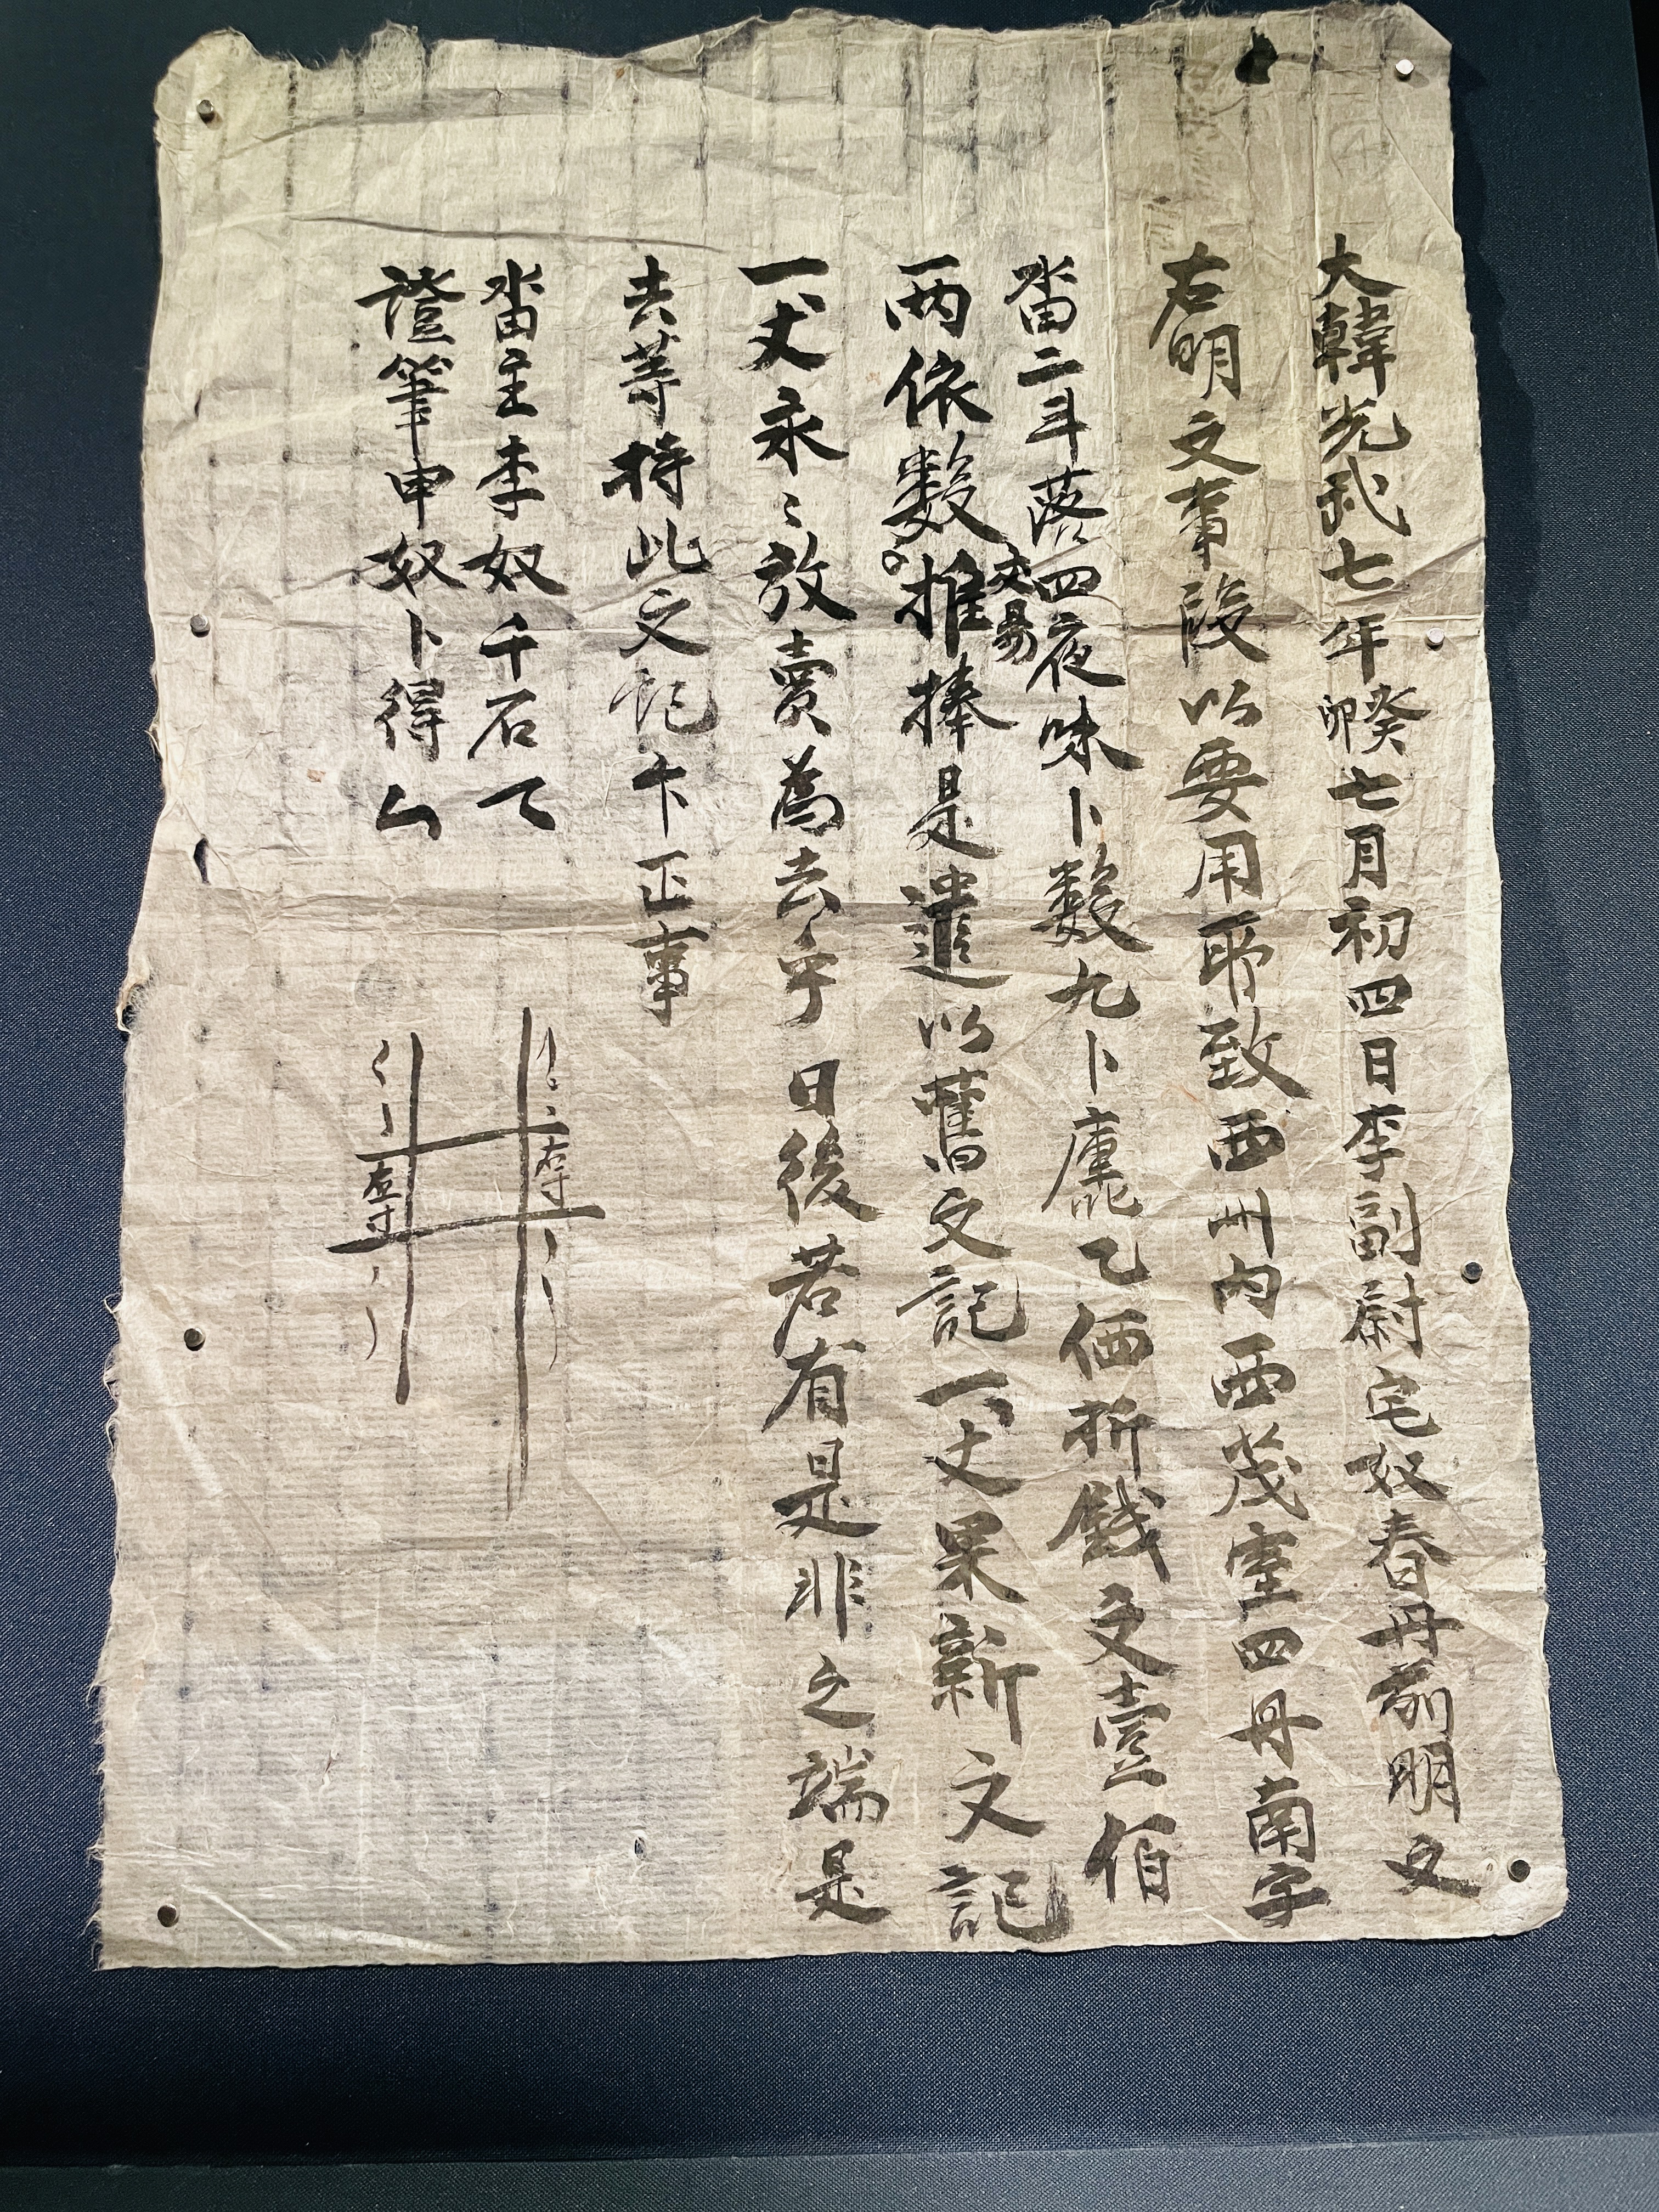 大韓光武七年癸卯七月初四日李副尉宅奴春丹前明文
右明文事段以要用所致西州內西茂壹四丹南字
畓二斗落四夜味卜數九卜庫乙価折錢文壹佰
昜
兩依數推捧是遣以舊文記一丈果新文記
一丈永々放賣爲去乎日後若有是非之端是
去等持此文記卞正事
畓主李奴千石
左寸
證筆申奴卜得
左寸